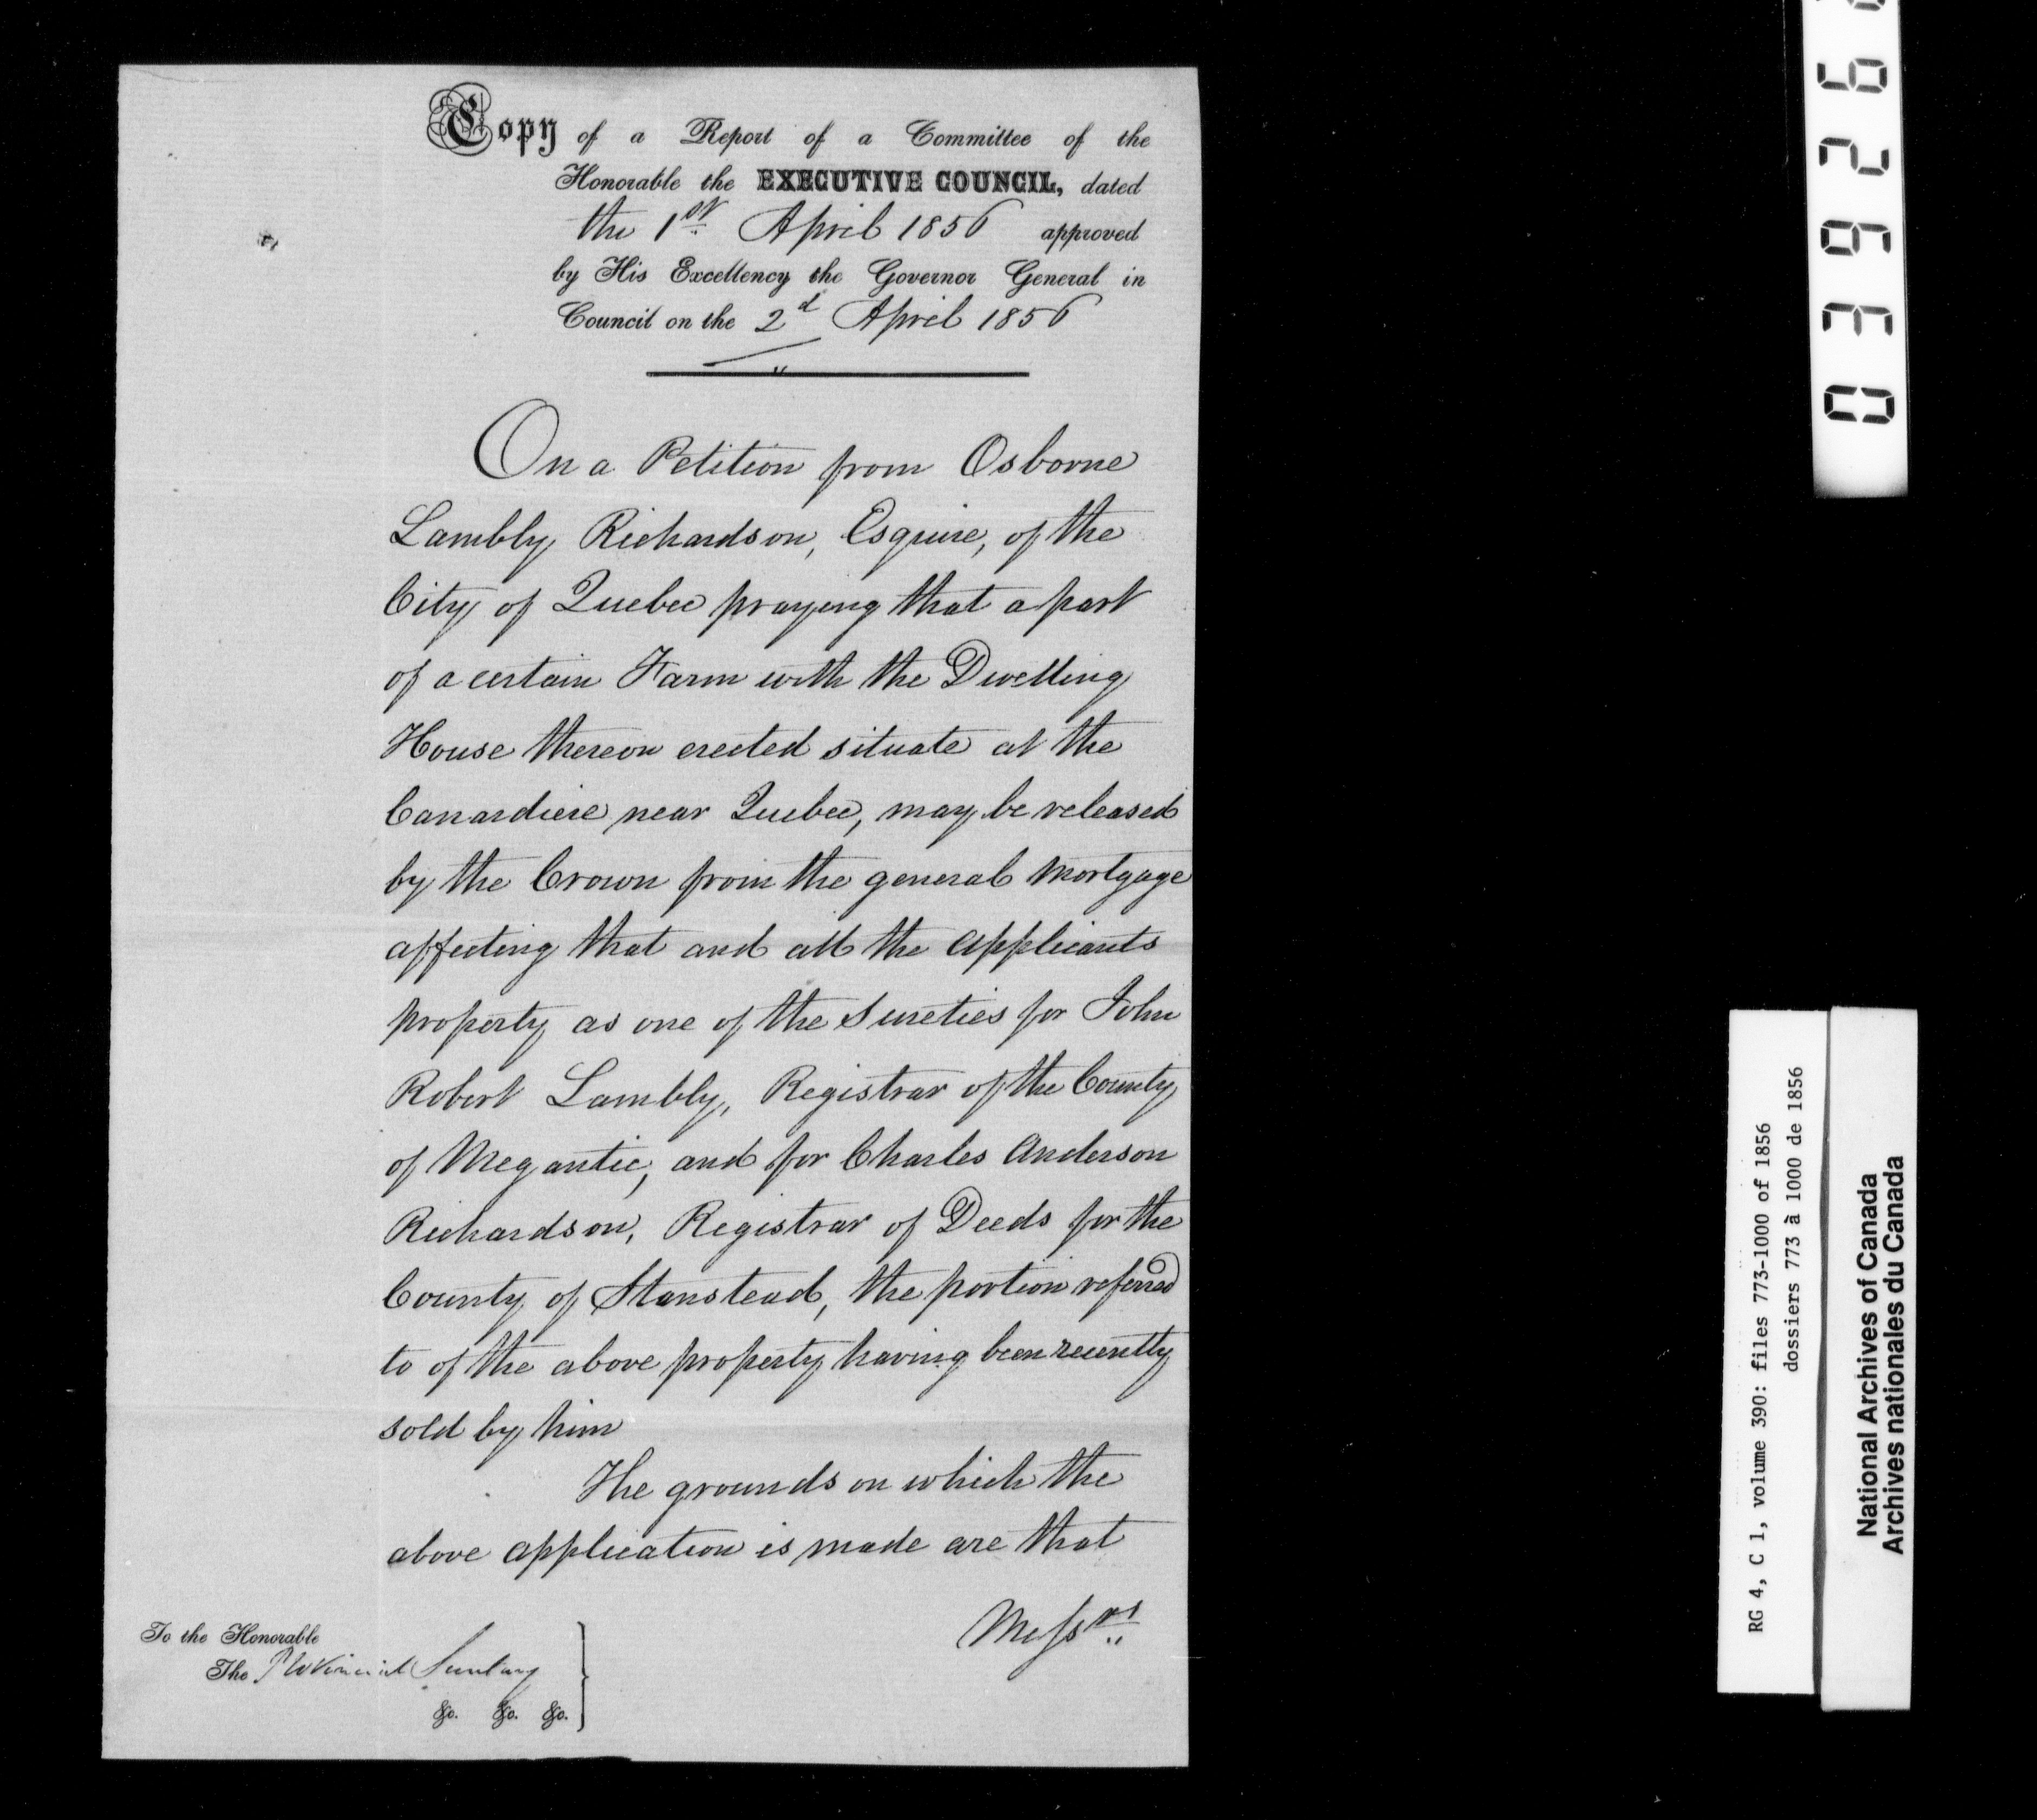 Copy of a Report of a Committee of the
Honorable the EXECUTIVE COUNCIL, dated
the 1st April 1856 approved
by His Excellency the Governor General in
Council on the 2d April 1856
On a Petition from Osborne
Lambly Richardson, Esquire, of the
City of Quebec praying that a part
of a certain Farm with the Dwelling
House thereon erected situate at the
Canardiere near Quebec, may be released
by the Crown from the general Mortgage
affecting that and all the Applicants
property as one of the Sureties for John
Robert Lambly, Registrar of the County
of Megantic, and for Charles Anderson
Richardson, Registrar of Deeds for the
County of Stanstead, the portion referred
to of the above property having been recently
sold by him
The grounds on which the
above application is made are that
Messrs
To the Honorable
The Provincial Secretary
&c. &c. &c.
03926
RG 4, C 1, volume 390: files 773-1000 of 1856
dossiers 773 à 1000 de 1856
National Archives of Canada
Archives nationales du Canada